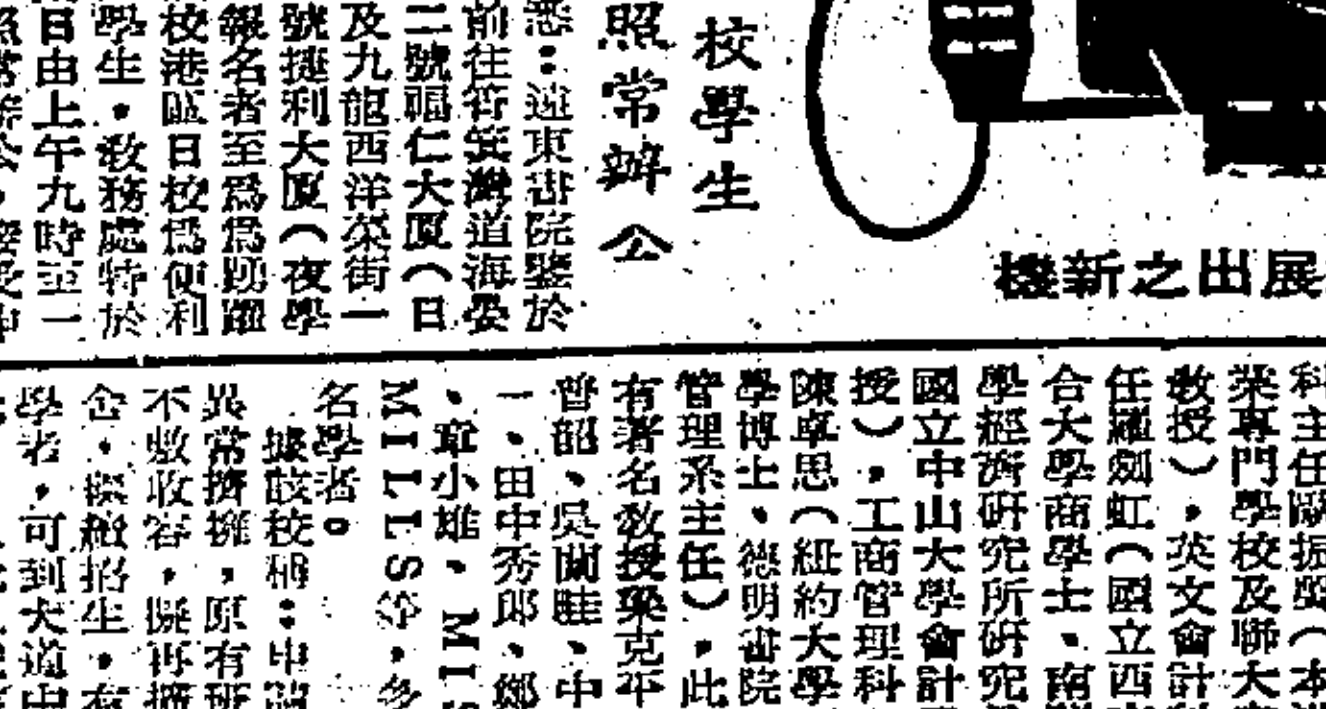 校學生
照常辦公
悉：遠東書院鑒於
前往筲箕灣道海晏
二號福仁大厦（日
及九龍西洋菜街一
號捷利大厦（夜學
報名者至爲爲踴躍
校港區日校爲便利
學生，敎務處特於
日由上午九時至一
照常辦公，接受申
機新之出展
科主任歐振興（本
業專門學校及聯大
敎授），英文會計
任羅劍虹（國立西
合大學商學士、
學經濟硏究所硏究
國立中山大學會計
授），工商管理科
陳卓思（紐約大學
學博士、德明書院
管理系主任），此
有著名敎授梁克平
曾韶、吳蘭畦、中
一，田中秀郎、鄭
，章小雄，MIS
MILLS等，多
名學者。
據該校稱：申請
異常擠擁，原有班
不敷收容，擬再擴
，繼續招生，有
學者，可到大道中